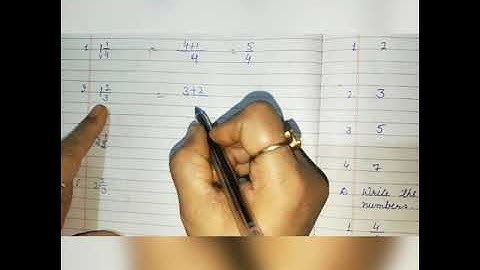 1 1 1/4 = 4+1/4 = 5/4
2 1 2/3 = 3+2
1 2
2 3
3 5
4 7
Q Write the
numbers.
1 4